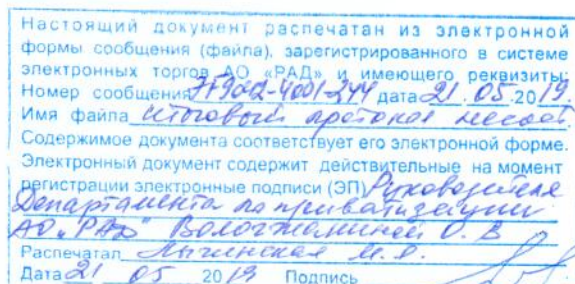 Настоящий документ распечатан из электронной
формы сообщения (файла), зарегистрированного в системе
электронных торгов АО «РАД» и имеющего реквизиты:
Номер сообщения дата 21.05.2019
Имя файла итоговый протокол
Содержимое документа соответствует его электронной форме.
Электронный документ содержит действительные на момент
регистрации электронные подписи (ЭП) Руководителя
Департамента по приватизации
АО "РАД" Вологжаниной О. В
Распечатал
Дата 21 05 2019 Подпись